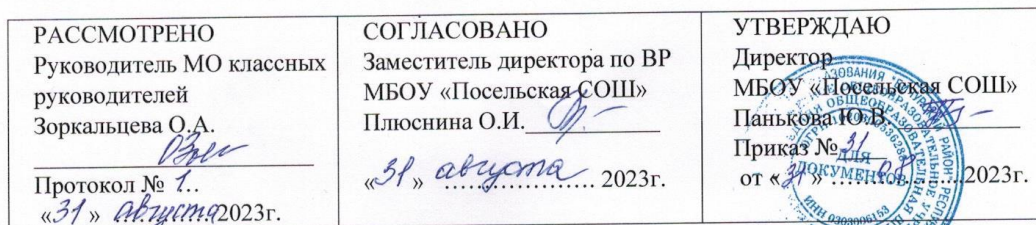 РАССМОТРЕНО
Руководитель МО классных
руководителей
Зоркальцева О.А.
Протокол № 1..
«31» августа 2023г.
СОГЛАСОВАНО
Заместитель директора по ВР
МБОУ «Посельская СОШ»
Плюснина О.И.
«31» августа 2023г.
УТВЕРЖДАЮ
Директор
МБОУ «Посельская СОШ»
Панькова Ю.В.
Приказ № 31
от «31» 2023г.
ДЛЯ
ДОКУМЕНТОВ
ИНН 0303006153